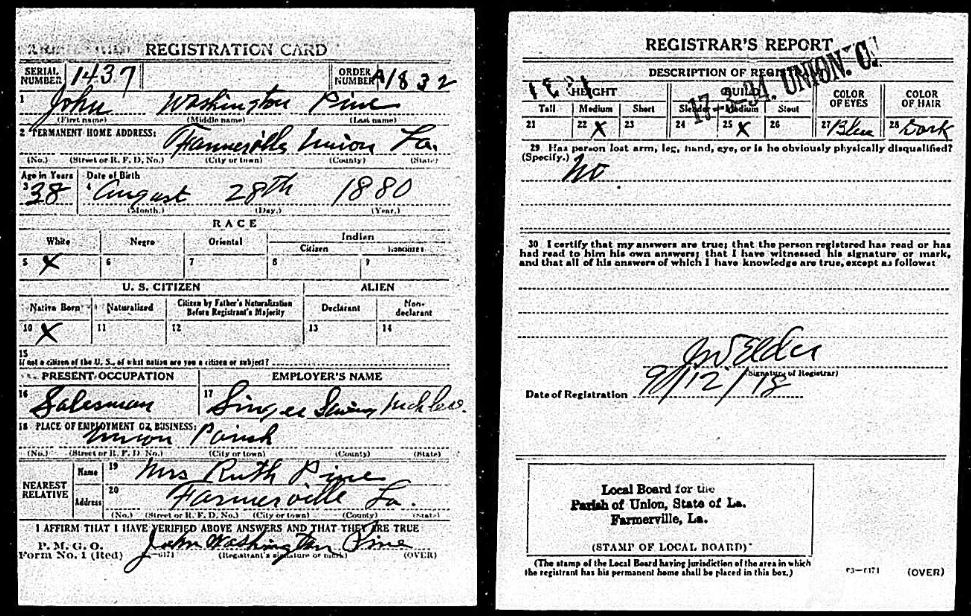 REGISTRATION CARD
SERIAL NUMBER 1437 ORDER NUMBER A1832
1 John Washington Pine
(First name) (Middle name) (Last name)
2 PERMANENT HOME ADDRESS:
Farmerville Union La.
(No.) (Street or R. F. D. No.) (City or town) (County) (State)
Age in Years Date of Birth
3 38 4 August 28th 1880
(Month.) (Day.) (Year.)
RACE
White Negro Oriental Indian
Citizen Noncitizen
5 X 6 7 8 9
U. S. CITIZEN ALIEN
Native Born Naturalized Citizen by Father's Naturalization Before Registrant's Majority Declarant Non-declarant
10 X 11 12 13 14
15
If not a citizen of the U. S., of what nation are you a citizen or subject?
PRESENT OCCUPATION EMPLOYER'S NAME
16 Salesman 17 Singer Sewing
18 PLACE OF EMPLOYMENT OR BUSINESS:
Union Parish
(No.) (Street or R. F. D. No.) (City or town) (County) (State)
NEAREST RELATIVE
Name 19 Mrs Ruth Pine
Address 20 Farmerville La.
(No.) (Street or R. F. D. No.) (City or town) (County) (State)
I AFFIRM THAT I HAVE VERIFIED ABOVE ANSWERS AND THAT THEY ARE TRUE
P. M. G. O.
Form No. 1 (Red) John Washington Pine
(Registrant's signature or mark) (OVER)
REGISTRAR'S REPORT
DESCRIPTION OF REGISTRANT
HEIGHT BUILD COLOR OF EYES COLOR OF HAIR
Tall Medium Short Slender Medium Stout
21 22 X 23 24 25 X 26 27 Blue 28 Dark
29 Has person lost arm, leg, hand, eye, or is he obviously physically disqualified?
(Specify.) No.
30 I certify that my answers are true; that the person registered has read or has
had read to him his own answers; that I have witnessed his signature or mark,
and that all of his answers of which I have knowledge are true, except as follows:
Elder
(Signature of Registrar)
Date of Registration 9/12/18
Local Board for the
Parish of Union, State of La.
Farmerville, La.
(STAMP OF LOCAL BOARD)
(The stamp of the Local Board having jurisdiction of the area in which
the registrant has his permanent home shall be placed in this box.)
(OVER)